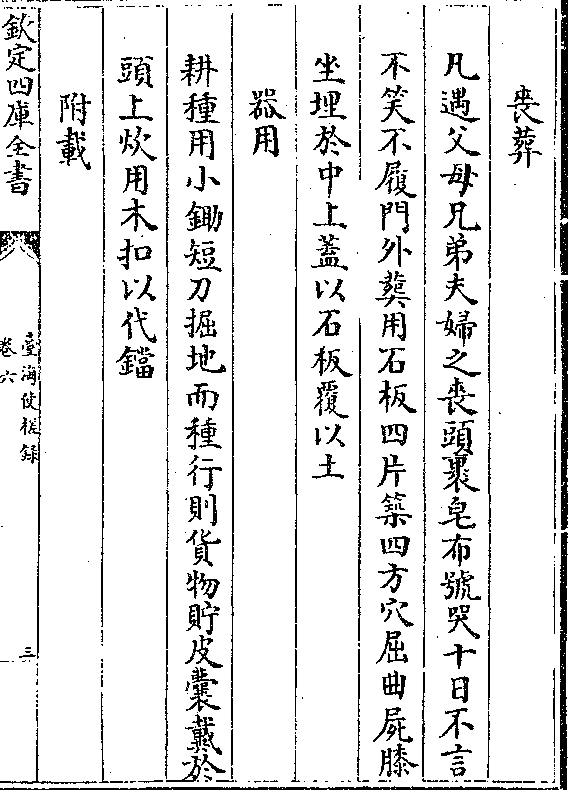 喪葬
凡遇父母兄弟夫婦之喪頭裹皂布號哭十日不言
不笑不履門外葬用石板四片築四方穴屈曲屍膝
坐埋於中上蓋以石板覆以土
器用
耕種用小鋤短刀掘地而種行則貨物貯皮囊戴於
頭上炊用木扣以代鐺
附載
欽定四庫全書
臺海使槎録
卷六
三